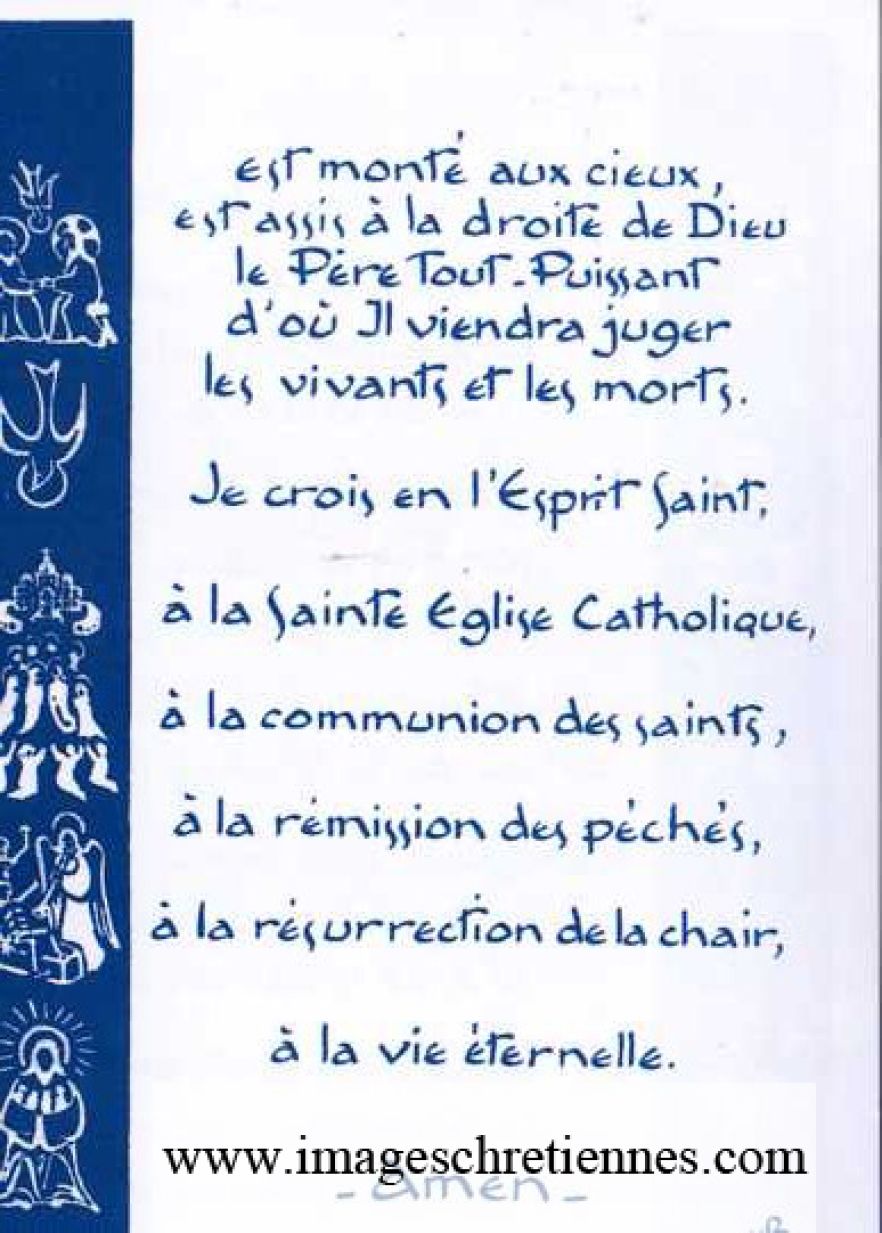 est monté aux cieux,
est assis à la droite de Dieu
le Père Tout-Puissant
d'où Il viendra juger
les vivants et les morts.
Je crois en l'Esprit Saint,
à la Sainte Eglise Catholique,
à la communion des saints,
à la rémission des péchés,
à la résurrection de la chair,
à la vie éternelle.
www.imageschretiennes.com
- amen -